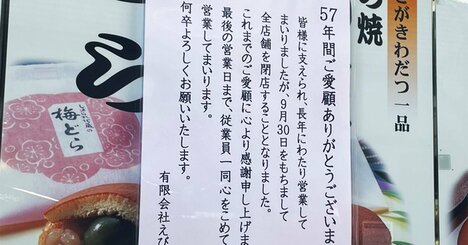 57年間ご愛顧ありがとうございま
皆様に支えられ、長年にわたり営業して
まいりましたが、9月30日をもちまして
全店舗を閉店することとなりました。
これまでのご愛顧に心より感謝申し上げま
最後の営業日まで、従業員一同心をこめて
営業してまいります。
何卒よろしくお願いいたします。
有限会社えび
さがきわだつ一品
の焼
シ
梅どら